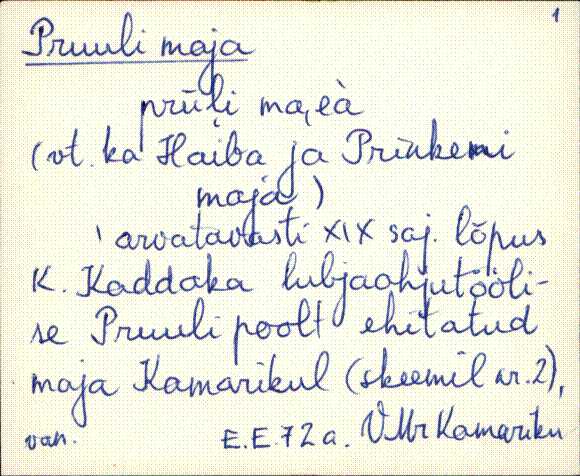 1
Pruuli maja
prūli ma,eà
(vt. ka Haiba ja Prinkemi
maja)
arvatavasti XIX saj. lõpus
K. Kaddaka lubjaahjutööli-
se Pruuli poolt ehitatud
maja Kamarikul (skeemil nr. 2),
van. E.E. 72 a. VMr Kamariku